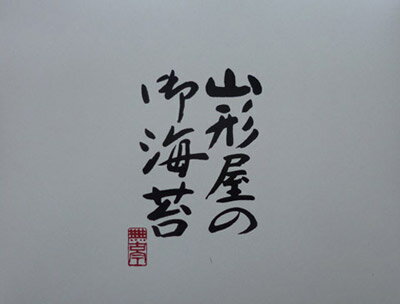 山形屋の
御海苔